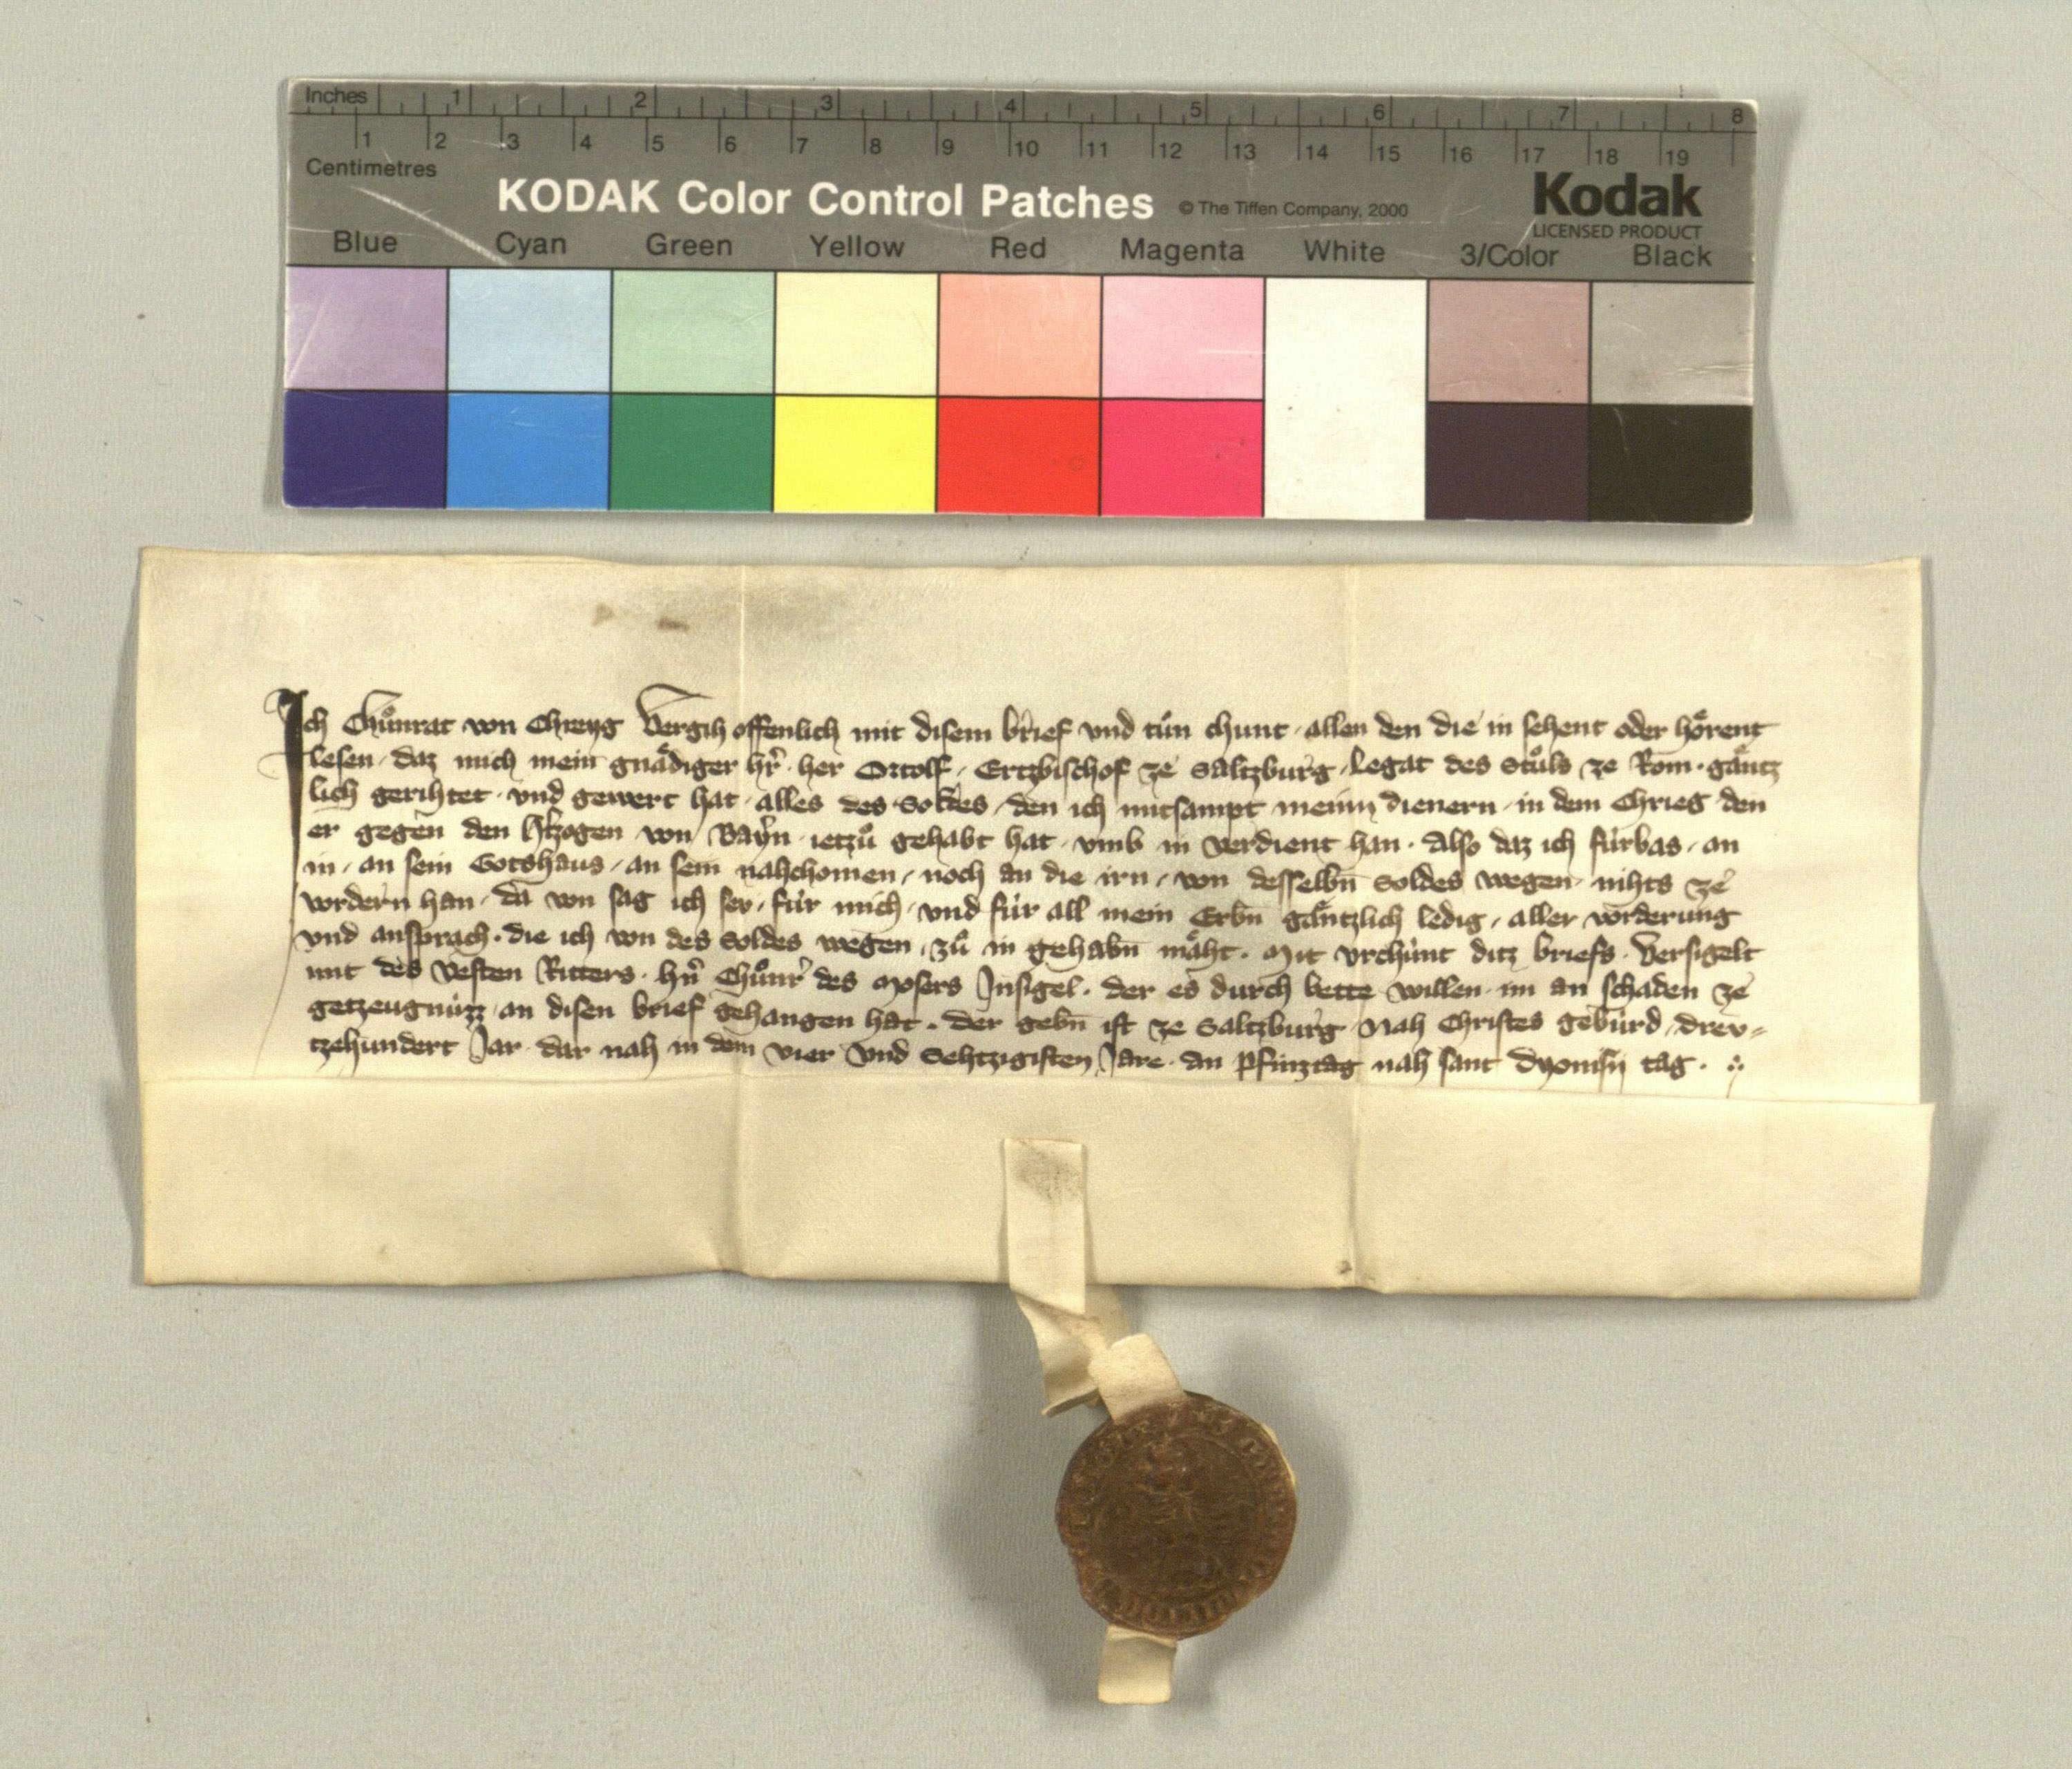 Inches 1 2 3 4 5 6 7 8
1 2 3 4 5 6 7 8 9 10 11 12 13 14 15 16 17 18 19
Centimetres
KODAK Color Control Patches © The Tiffen Company, 2000 Kodak
LICENSED PRODUCT
Blue Cyan Green Yellow Red Magenta White 3/Color Black
Ich Chuͦnrat von Chreyg Vergih offenlich mit disem brief vnd tuͦn chunt · allen den die in sehent oder hoͤrent
lesen · daz mich mein gnaͤdiger hr̄ · her Ortolf · Ertzbischof ze Saltzburg · Legat des Stuͦls ze Rom · gaͤntz
lich gerihtet · vnd gewert hat · alles des Soldes · den ich mitsampt meinn dienern · in dem Chrieg den
er gegen den Hertzogen von Bayrn · ietzuͦ gehabt hat · vmb in verdient han · Also daz ich fuͤrbas · an
in · an sein Gotshaus · an sein nahchomen · noch an die irn · von desselbn̄ Soldes wegen · nihts ze
vordern han · da von sag ich sev · fuͤr mich · vnd fuͤr all mein Erbn̄ gaͤntzlich ledig · aller vorderung
vnd ansprach · die ich von des Soldes wegen · zuͦ in gehabn̄ maͤht · Mit vrchuͤnt ditz briefs · Versigelt
mit des Vesten Ritters · hn̄ Chuͦnr̄ des Mosers Insigel · der es durch bette willen · im an schaden ze
getzeugnuͤzz · an disen brief gehangen hat · Der gebn̄ ist ze Saltzburg · Nah Christes gebuͤrd · drev-
tzehundert Jar · dar nah in dem vier vnd Sehtzigisten Jare · an Pfintztag nah sant Dyonisij tag ·